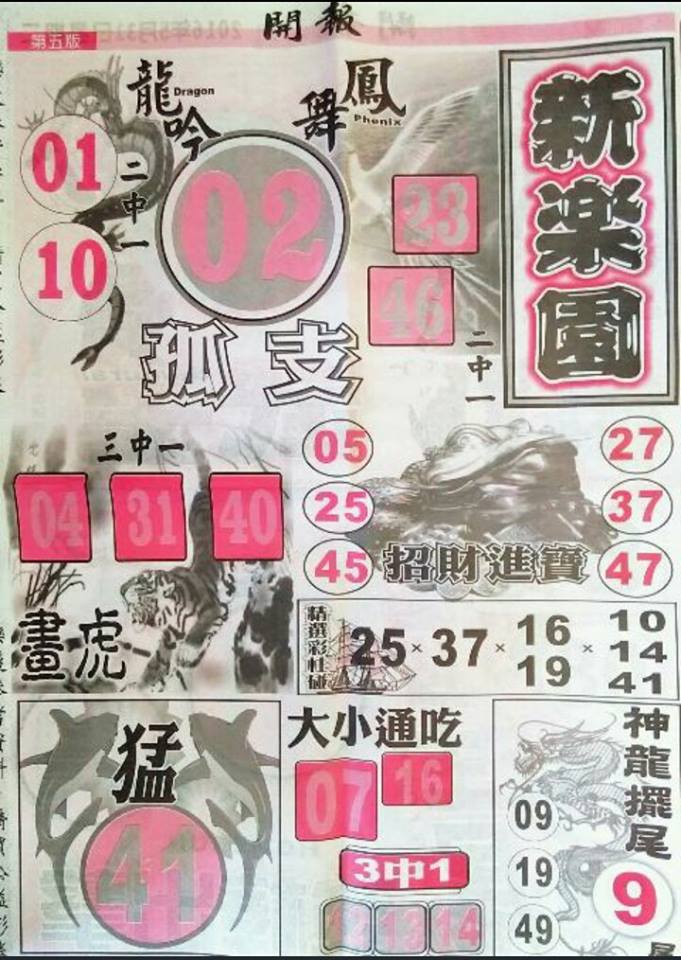 開報
第五版
龍吟
Dragon
鳳舞
Phenix
新楽園
01
10
二中一
02
23
46
二中一
孤支
三中一
04 31 40
畫虎
05
25
45
27
37
47
招財進寶
精選彩柱碰
25 × 37 × 16 19 × 10 14 41
猛
41
大小通吃
07 16
3中1
12 13 14
神龍擺尾
09
19
49
9
尾